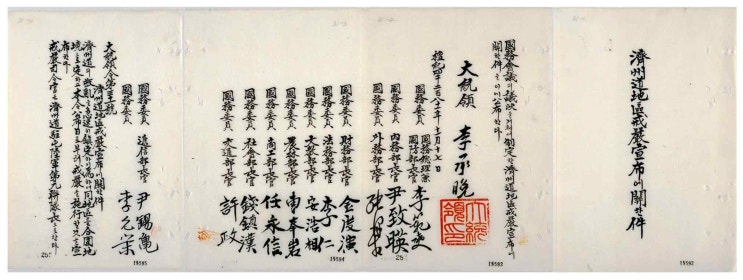 濟州道地區戒嚴宣布에關한件
國務會議의議決을거쳐서制定한濟州道地區戒嚴宣布에
關한件을이에公布한다
大統領 李承晩
檀紀四千二百八十一年十一月十七日
國務總理兼
國防部長官 李範奭
國務委員 內務部長官 尹致暎
國務委員 外務部長官 張澤相
國務委員 財務部長官 金度演
國務委員 法務部長官 李仁
國務委員 文敎部長官 安浩相
國務委員 農林部長官
國務委員 商工部長官 任永信
國務委員 社會部長官 錢鎭漢
國務委員 交通部長官 許政
國務委員 遞信部長官 尹錫龜
國務委員
大統領令第三十一號
濟州道地區戒嚴宣布에關한件
濟州道의 한
境을定하고本令公布日로부터戒嚴을施行할것을宣
布한다
戒嚴司令官은濟州道駐屯陸軍第九聯隊長으로한다
大統領印
19592
19593
19594
19595